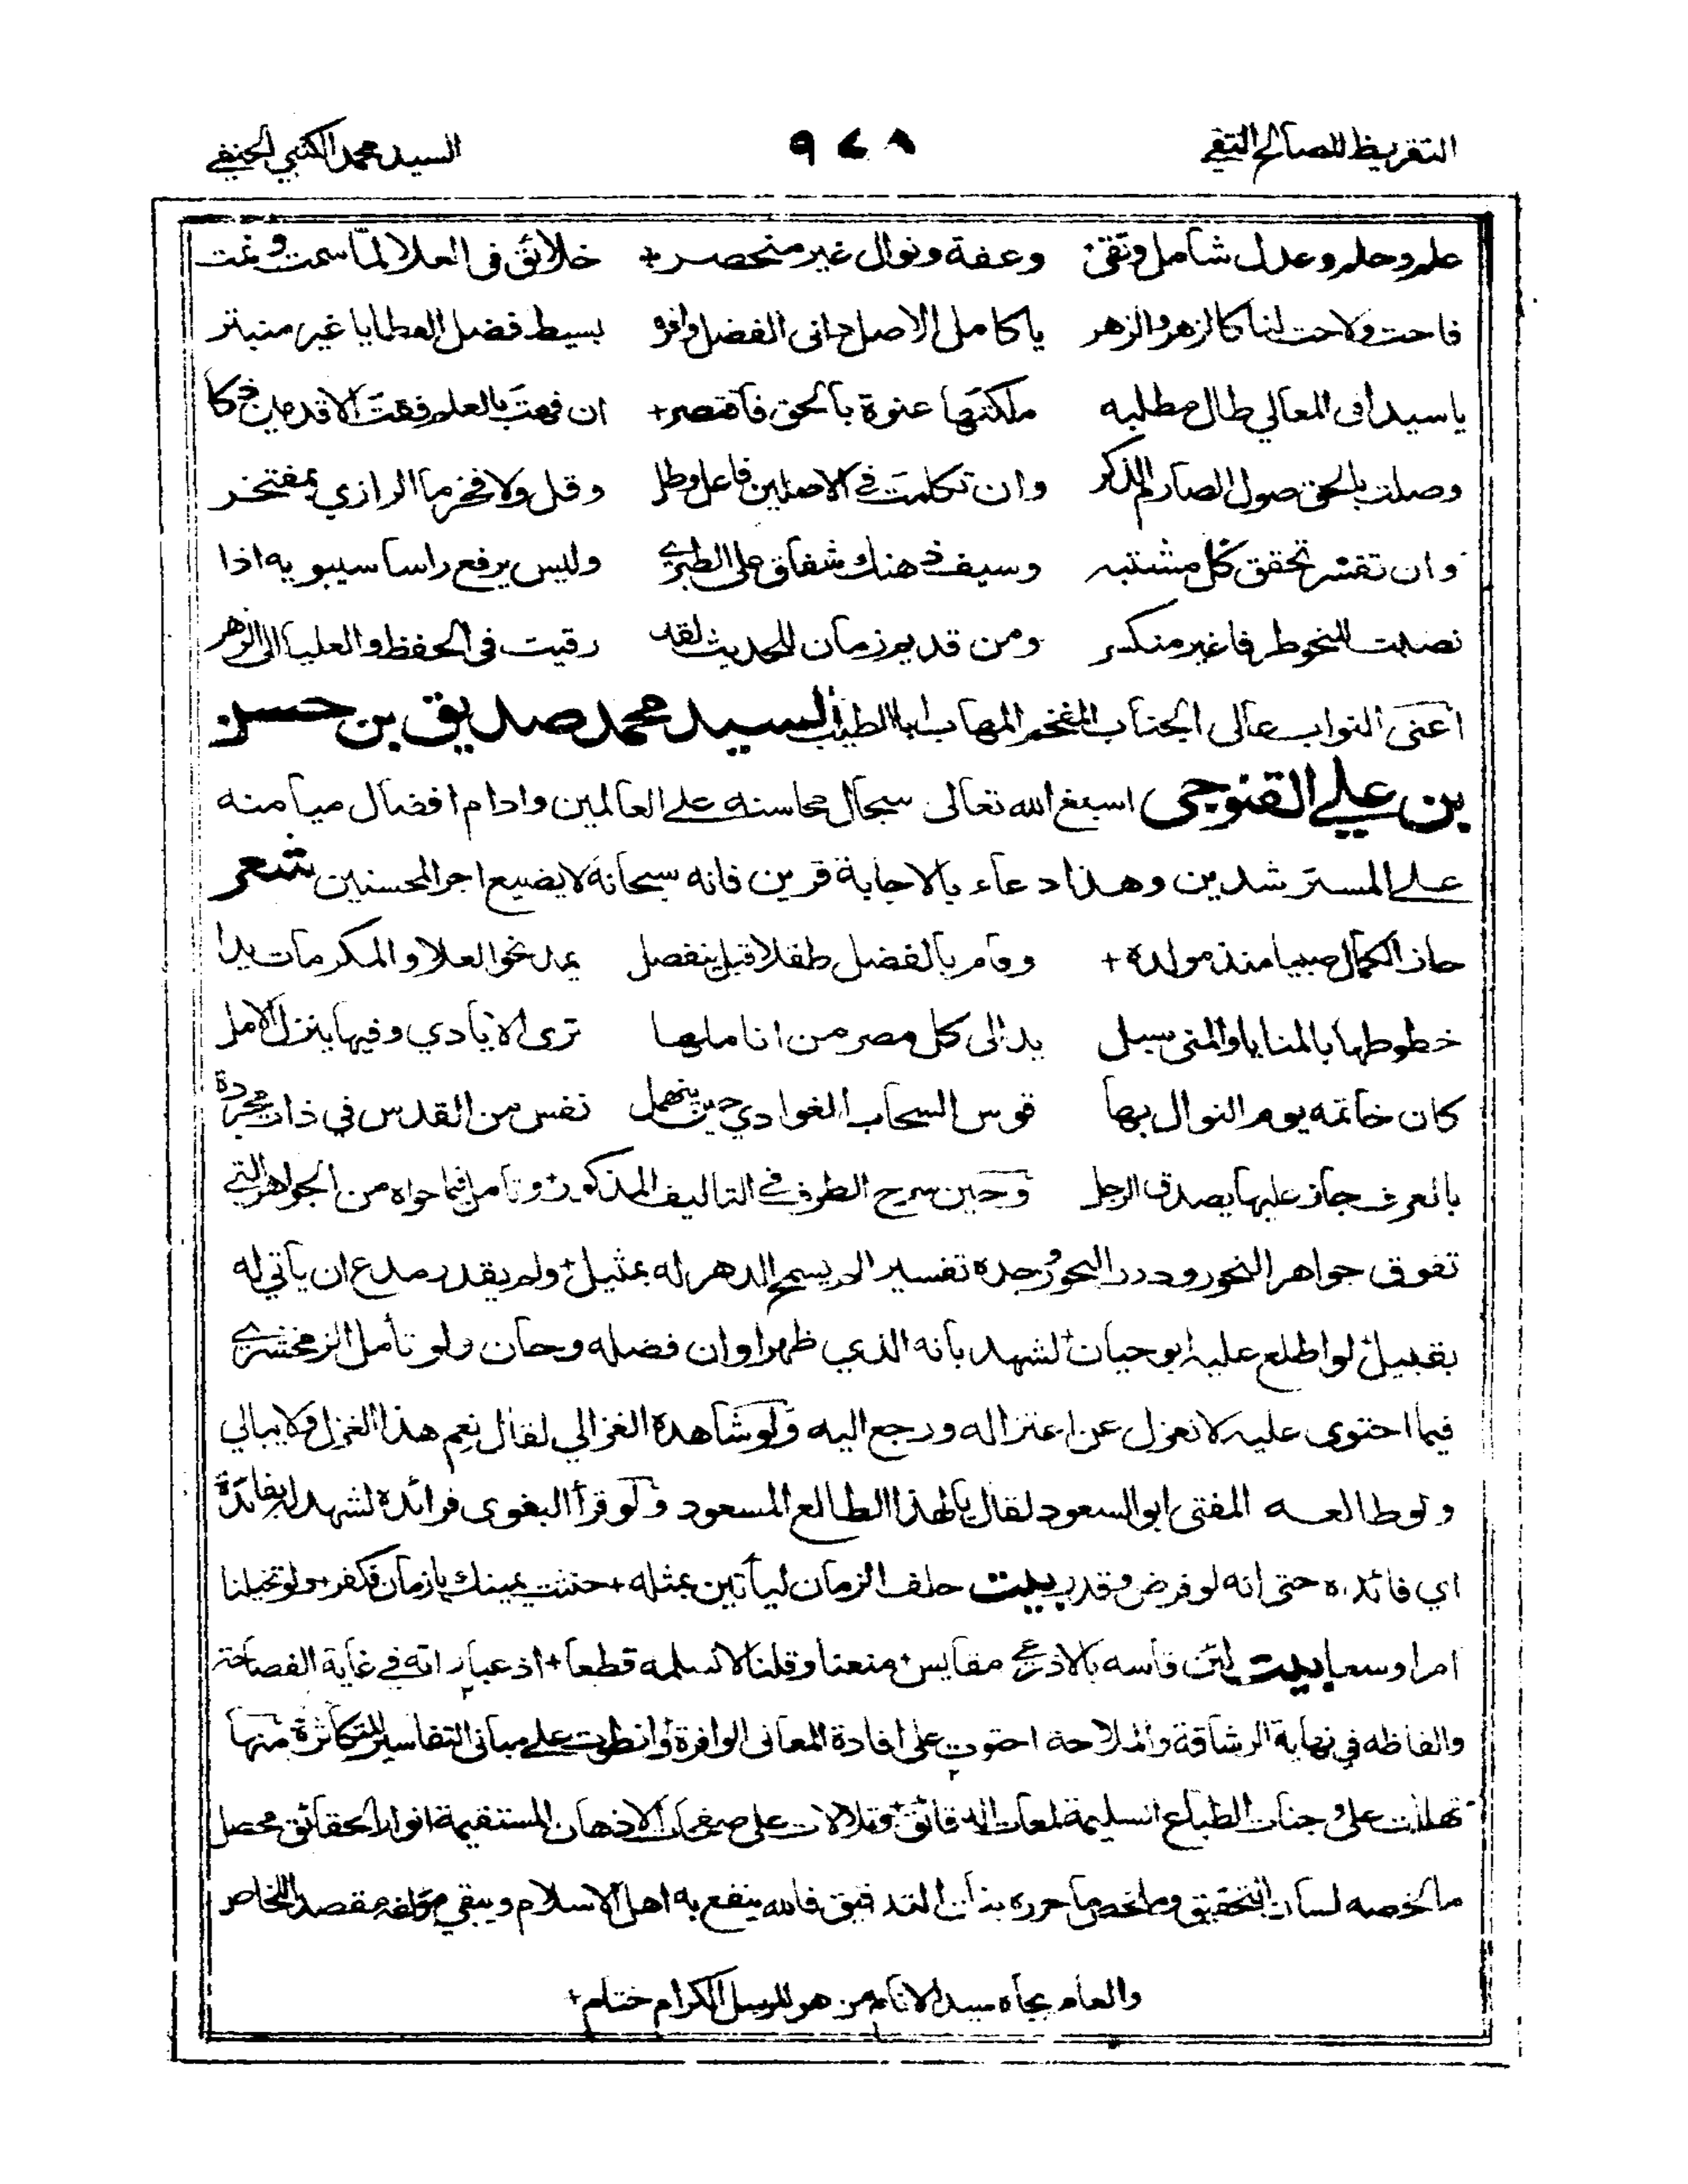 التقريظ للصالح التقي ٩٤٨ السيد محمد الكتبي الحنفي
علم وحلم وعدل شامل وتقى وعفة ونوال غير منحصر + خلائق في العلا لما سمت ونمت
فاحت ولاحت لنا كالزهر والزهر يا كامل الاصل داني الفضل وافره بسيط فضل العطايا غير منبتر
يا سيدا في المعالي طال مطلبه ملكتها عنوة بالحق فاقتصر + ان فهت بالعلم فقت الاقدمين ذكا
وصلت بالحق صول الصارم الذكر وان تكلمت في الاصلين فاعل وطل وقل ولا فخر ما الرازي بمفتخر
وان تفسر تحقق كل مشتبه وسيف ذهنك شفاق على الطبري وليس يرفع راسا سيبويه اذا
نصبت للنحو طرفا غير منكسر ومن قديم زمان للحديث لقد رقيت في الحفظ والعليا الى الزهر
اعني النواب عالي الجناب المفخم المهاب ابا الطيب السيد محمد صديق بن حسن
بن علي القنوجي اسبغ الله تعالى سجال محاسنه على العالمين وادام افضال ميامنه
على المسترشدين وهذا دعاء بالاجابة قرين فانه سبحانه لا يضيع اجر المحسنين شعر
حاز الكمال صبيا منذ مولده + وقام بالفضل طفلا قبل ينفصل يمد نحو العلا والمكرمات يدا
خطوطها بالمنايا والمنى سبل يد الى كل مصر من اناملها ترى الايادي وفيها ينزل الامل
كان خاتمه يوم النوال بها قوس السحاب الغوادي حين ينهمل نفس من القدس في ذات مجردة
بالعرف جاز عليها يصدق الرجل وحين سرح الطرف في التاليف المذكور + وتامل فيما حواه من الجواهر التي
تفوق جواهر النحور ودرر البحور وجده تفسيرا لم يسمح الدهر له بمثيل + ولم يقدر مدع ان يأتي له
بقبيل + لو اطلع عليه ابو حيان + لشهد بأنه الذي ظهر اوان فضله وحان ولو تأمل الزمخشري
فيما احتوى عليه لانعزل عن اعتزاله ورجع اليه ولو شاهده الغزالي لقال نعم هذا الغزل ولا يبالي
ولو طالعه المفتي ابو السعود لقال يا لهذا الطالع المسعود ولو قرأ البغوي فرائده لشهد له بفائدة
اي فائده حتى انه لو فرض وقدر بيت حلف الزمان ليأتين بمثله + حنثت يمينك يا زمان فكفر + ولو تخيلنا
امرا وسعا بيت لئن قاسه بالاذرعي مقايس + منعنا وقلنا لا نسلمه قطعا + اذ عباراته في غاية الفصاحة
والفاظه في نهاية الرشاقة والملاحة احتوت على افادة المعاني الوافرة وانطوت على مباني التفاسير المتكاثرة منها
تهللت على وجنات الطباع السليمة لمعات الدقائق + وتلالات على صفحات الاذهان المستقيمة انوار الحقائق محصل
ما لخصه لسان التحقيق وملخص ما حرره بنان التدقيق فالله ينفع به اهل الاسلام ويبقي مؤلفه مقصد الخاص
والعام بجاه سيد الانام من هو للرسل الكرام ختام +